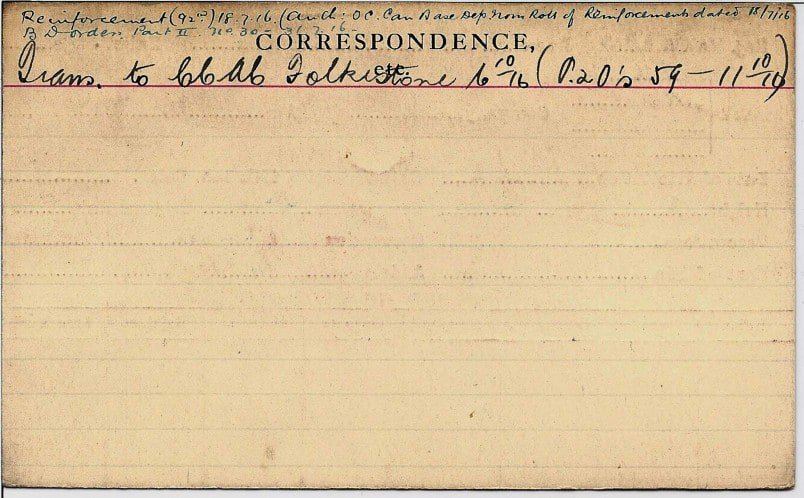 Reinforcement (92nd) 18.7.16. (Auth: O.C. Can Base Dep Nom Roll of Reinforcements dated 18/7/16
B D orders Part II No. 30 - 31.7.16 -
CORRESPONDENCE,
Trans. to CCAC Folkestone 6 10/16 (P.2 O's 59 - 11 10/16)
etc.